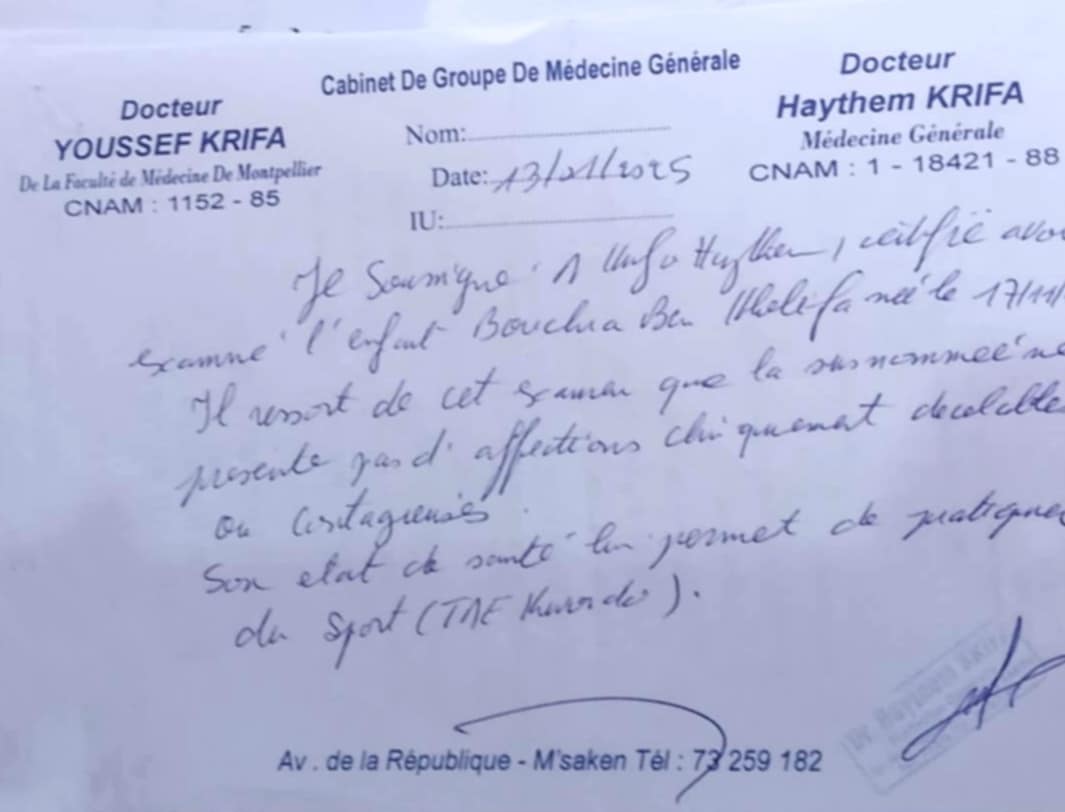 Cabinet De Groupe De Médecine Générale
Docteur
YOUSSEF KRIFA
De La Faculté de Médecine De Montpellier
CNAM : 1152 - 85
Docteur
Haythem KRIFA
Médecine Générale
CNAM : 1 - 18421 - 88
Nom:
Date: 13/01/2025
IU:
Je Soussigné Haythem, certifie avoi
examiné l'enfant Bouchra Ben Khelifa née le 17/11/
Il ressort de cet examen que la susnommée ne
presente pas d'affections cliniquement decelables
ou contagieuses.
Son etat de santé lui permet de pratiquer
du sport (TAE Kwondo).
Dr. Haythem KRIFA
Av . de la République - M'saken Tél : 73 259 182